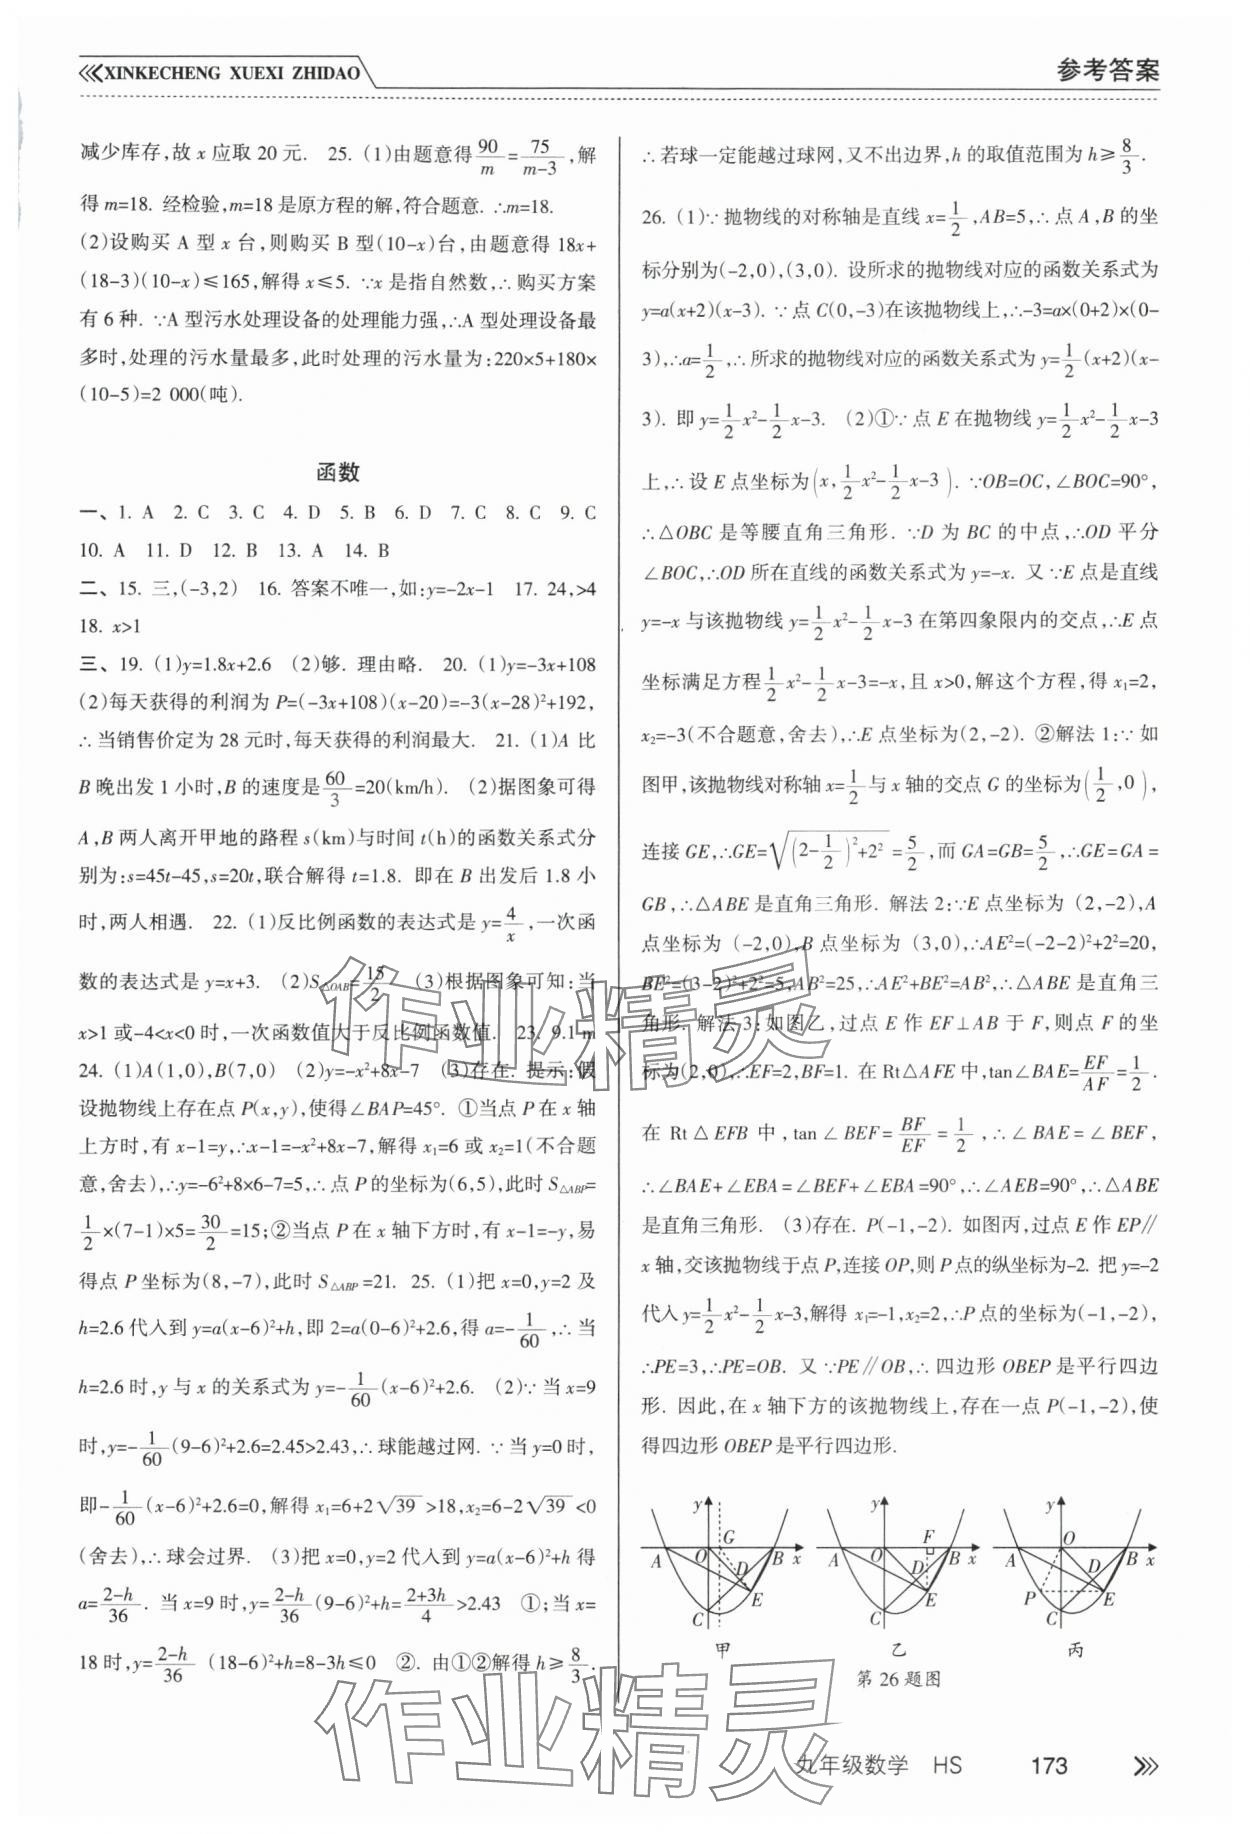 XINKECHENG XUEXI ZHIDAO
参考答案
减少库存,故 x 应取 20 元. 25. (1)由题意得90/m=75/(m-3),解
得 m=18. 经检验,m=18 是原方程的解,符合题意. ∴m=18.
(2)设购买 A 型 x 台,则购买 B 型(10-x)台,由题意得 18x+
(18-3)(10-x)≤165,解得 x≤5. ∵x 是指自然数,∴购买方案
有 6 种. ∵A 型污水处理设备的处理能力强,∴A 型处理设备最
多时,处理的污水量最多,此时处理的污水量为:220×5+180×
(10-5)=2 000(吨).
函数
一、1. A 2. C 3. C 4. D 5. B 6. D 7. C 8. C 9. C
10. A 11. D 12. B 13. A 14. B
二、15. 三,(-3,2) 16. 答案不唯一,如:y=-2x-1 17. 24,>4
18. x>1
三、19. (1)y=1.8x+2.6 (2)够. 理由略. 20. (1)y=-3x+108
(2)每天获得的利润为 P=(-3x+108)(x-20)=-3(x-28)²+192,
∴当销售价定为 28 元时,每天获得的利润最大. 21. (1)A 比
B 晚出发 1 小时,B 的速度是60/3=20(km/h). (2)据图象可得
A,B 两人离开甲地的路程 s(km)与时间 t(h)的函数关系式分
别为:s=45t-45,s=20t,联合解得 t=1.8. 即在 B 出发后 1.8 小
时,两人相遇. 22. (1)反比例函数的表达式是 y=4/x,一次函
数的表达式是 y=x+3. (2)S△OAB=15/2 (3)根据图象可知:当
x>1 或-4<x<0 时,一次函数值大于反比例函数值. 23. 9.1 m
24. (1)A(1,0),B(7,0) (2)y=-x²+8x-7 (3)存在. 提示:假
设抛物线上存在点 P(x,y),使得∠BAP=45°. ①当点 P 在 x 轴
上方时,有 x-1=y,∴x-1=-x²+8x-7,解得 x₁=6 或 x₂=1(不合题
意,舍去),∴y=-6²+8×6-7=5,∴点 P 的坐标为(6,5),此时 S△ABP=
1/2×(7-1)×5=30/2=15;②当点 P 在 x 轴下方时,有 x-1=-y,易
得点 P 坐标为(8,-7),此时 S△ABP=21. 25. (1)把 x=0,y=2 及
h=2.6 代入到 y=a(x-6)²+h,即 2=a(0-6)²+2.6,得 a=-1/60,∴当
h=2.6 时,y 与 x 的关系式为 y=-1/60(x-6)²+2.6. (2)∵当 x=9
时,y=-1/60(9-6)²+2.6=2.45>2.43,∴球能越过网. ∵当 y=0 时,
即-1/60(x-6)²+2.6=0,解得 x₁=6+2√39>18,x₂=6-2√39<0
(舍去),∴球会过界. (3)把 x=0,y=2 代入到 y=a(x-6)²+h 得
a=(2-h)/36. 当 x=9 时,y=(2-h)/36(9-6)²+h=(2+3h)/4>2.43 ①;当 x=
18 时,y=(2-h)/36(18-6)²+h=8-3h≤0 ②. 由①②解得 h≥8/3.
∴若球一定能越过球网,又不出边界,h 的取值范围为 h≥8/3.
26. (1)∵抛物线的对称轴是直线 x=1/2,AB=5,∴点 A,B 的坐
标分别为(-2,0),(3,0). 设所求的抛物线对应的函数关系式为
y=a(x+2)(x-3). ∵点 C(0,-3)在该抛物线上,∴-3=a×(0+2)×(0-
3),∴a=1/2,∴所求的抛物线对应的函数关系式为 y=1/2(x+2)(x-
3). 即 y=1/2x²-1/2x-3. (2)①∵点 E 在抛物线 y=1/2x²-1/2x-3
上,∴设 E 点坐标为(x,1/2x²-1/2x-3). ∵OB=OC,∠BOC=90°,
∴△OBC 是等腰直角三角形. ∵D 为 BC 的中点,∴OD 平分
∠BOC,∴OD 所在直线的函数关系式为 y=-x. 又∵E 点是直线
y=-x 与该抛物线 y=1/2x²-1/2x-3 在第四象限内的交点,∴E 点
坐标满足方程1/2x²-1/2x-3=-x,且 x>0,解这个方程,得 x₁=2,
x₂=-3(不合题意,舍去),∴E 点坐标为(2,-2). ②解法 1:∵如
图甲,该抛物线对称轴 x=1/2与 x 轴的交点 G 的坐标为(1/2,0),
连接 GE,∴GE=√((2-1/2)²+2²)=5/2,而 GA=GB=5/2,∴GE=GA=
GB,∴△ABE 是直角三角形. 解法 2:∵E 点坐标为 (2,-2),A
点坐标为 (-2,0),B 点坐标为 (3,0),∴AE²=(-2-2)²+2²=20,
BE²=(3-2)²+2²=5,AB²=25,∴AE²+BE²=AB²,∴△ABE 是直角三
角形. 解法 3:如图乙,过点 E 作 EF⊥AB 于 F,则点 F 的坐
标为(2,0),∴EF=2,BF=1. 在 Rt△AFE 中,tan∠BAE=EF/AF=1/2.
在 Rt△EFB 中,tan∠BEF=BF/EF=1/2,∴∠BAE=∠BEF,
∴∠BAE+∠EBA=∠BEF+∠EBA=90°,∴∠AEB=90°,∴△ABE
是直角三角形. (3)存在. P(-1,-2). 如图丙,过点 E 作 EP∥
x 轴,交该抛物线于点 P,连接 OP,则 P 点的纵坐标为-2. 把 y=-2
代入 y=1/2x²-1/2x-3,解得 x₁=-1,x₂=2,∴P 点的坐标为(-1,-2),
∴PE=3,∴PE=OB. 又∵PE∥OB,∴四边形 OBEP 是平行四边
形. 因此,在 x 轴下方的该抛物线上,存在一点 P(-1,-2),使
得四边形 OBEP 是平行四边形.
y G A O B x D E C
甲
y F A O B x D E C
乙
y O A B x D P E C
丙
第 26 题图
作业精灵
作业精灵
九年级数学 HS 173